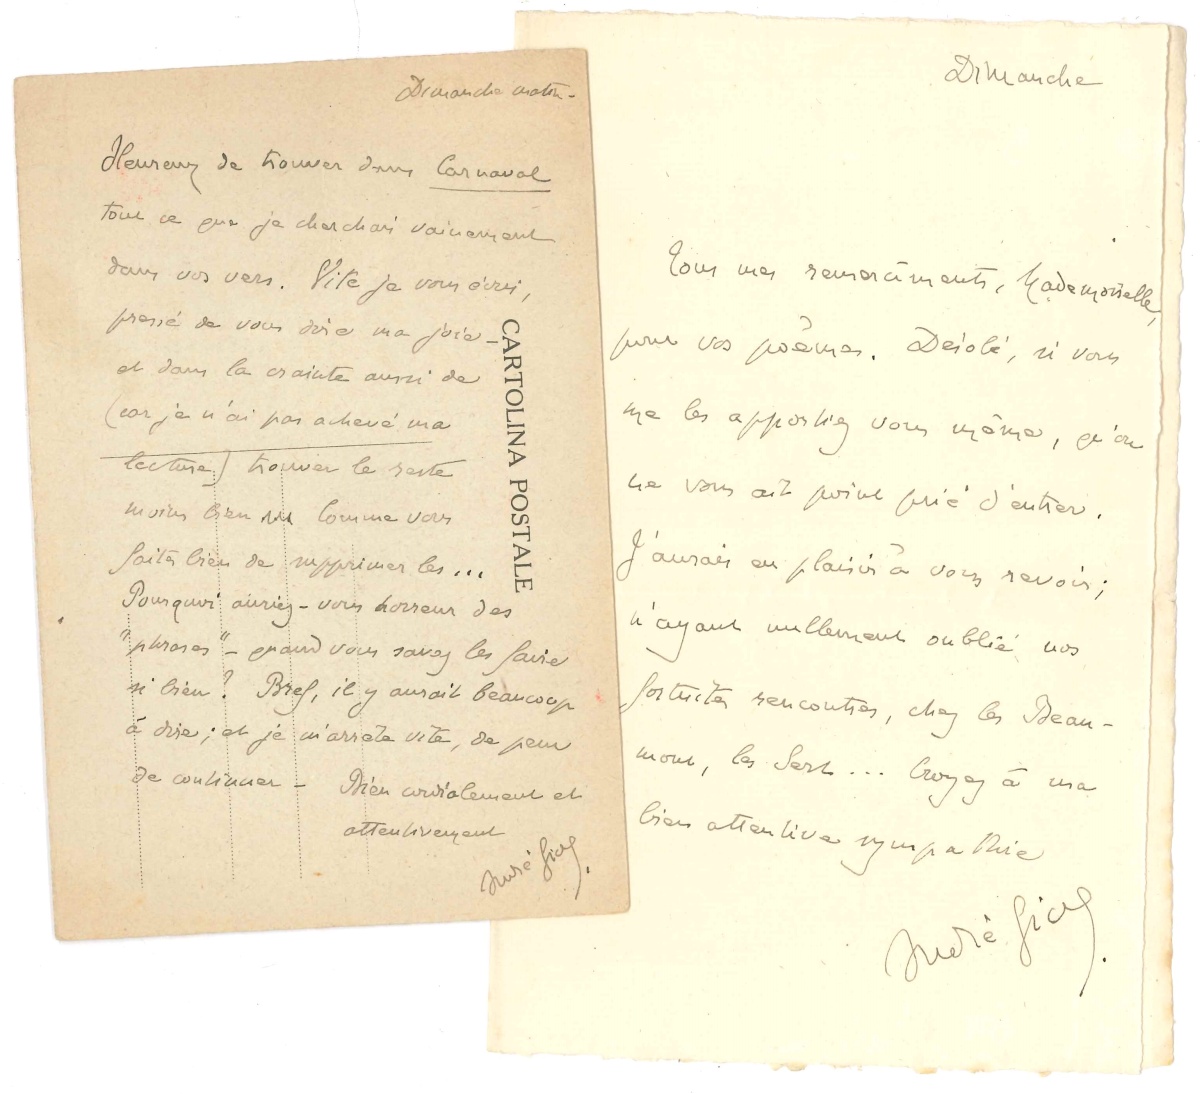 Dimanche matin -
Heureux de trouver dans Carnaval
tout ce que je cherchais vainement
dans vos vers. Vite je vous écris,
pressé de vous dire ma joie -
et dans la crainte aussi de
(car je n'ai pas achevé ma
lecture) trouver le reste
moins bien Comme vous
faites bien de supprimer les...
Pourquoi auriez-vous horreur des
"phrases" - quand vous savez les faire
si bien? Bref, il y aurait beaucoup
à dire; et je m'arrête vite, de peur
de continuer - Bien cordialement et
attentivement
André Gide.
CARTOLINA POSTALE
Dimanche
Tous mes remerciements, Mademoiselle,
pour vos poèmes. Désolé, si vous
me les apportiez vous même, qu'on
ne vous ait point prié d'entrer.
J'aurais eu plaisir à vous revoir;
n'ayant nullement oublié nos
fortuites rencontres, chez les Beau-
mont, les Sert... Croyez à ma
bien attentive sympathie
André Gide.